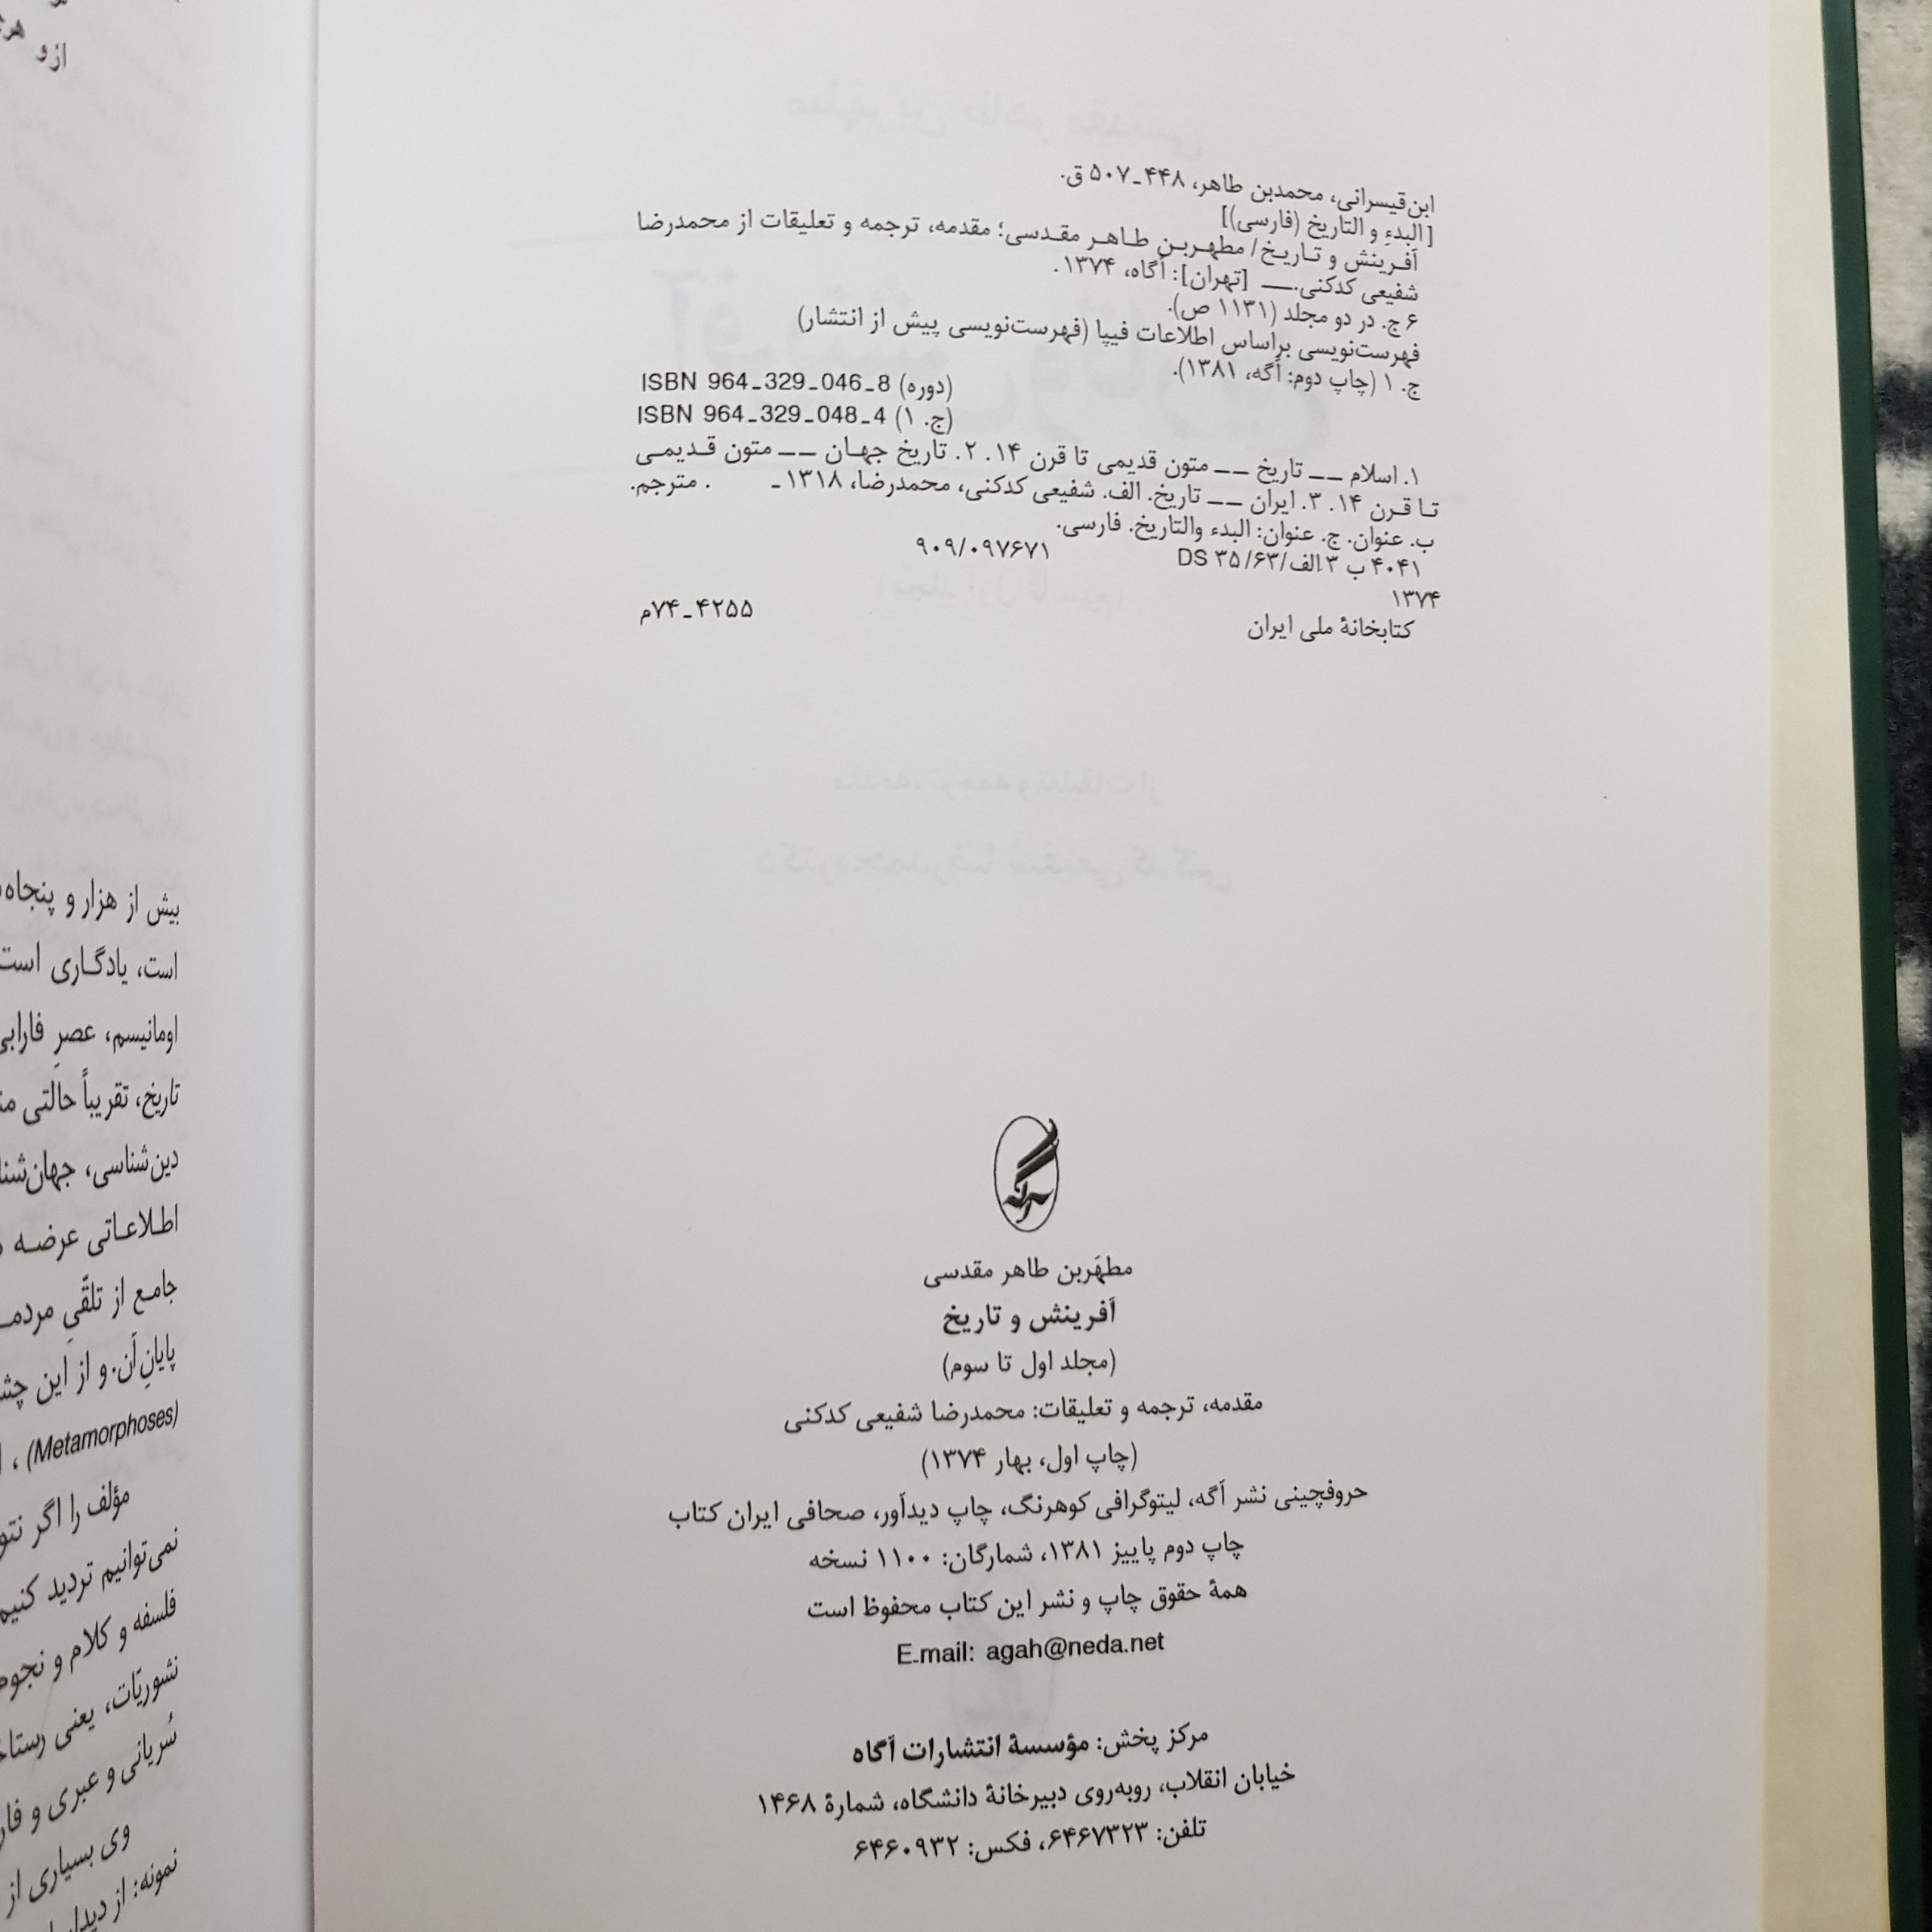 ابن‌قیسرانی، محمدبن طاهر، ۴۴۸ـ۵۰۷ ق.
[البدءِ و التاریخ (فارسی)]
آفرینش و تاریخ/ مطهربن طاهر مقدسی؛ مقدمه، ترجمه و تعلیقات از محمدرضا
شفیعی کدکنی.ــــ [تهران]: آگاه، ۱۳۷۴.
۶ ج. در دو مجلد (۱۱۳۱ ص).
فهرست‌نویسی براساس اطلاعات فیپا (فهرست‌نویسی پیش از انتشار)
ج. ۱ (چاپ دوم: آگه، ۱۳۸۱).
ISBN 964-329-046-8 (دوره)
ISBN 964-329-048-4 (ج. ۱)
۱. اسلام ــ تاریخ ــ متون قدیمی تا قرن ۱۴. ۲. تاریخ جهان ــ متون قدیمی
تا قرن ۱۴. ۳. ایران ــ تاریخ. الف. شفیعی کدکنی، محمدرضا، ۱۳۱۸ـ . مترجم.
ب. عنوان. ج. عنوان: البدء والتاریخ. فارسی.
۴۰۴۱ ب ۳الف/۶۳/ DS ۳۵ ۹۰۹/۰۹۷۶۷۱
۱۳۷۴
کتابخانهٔ ملی ایران ۴۲۵۵ـ۷۴م
مطهَربن طاهر مقدسی
آفرینش و تاریخ
(مجلد اول تا سوم)
مقدمه، ترجمه و تعلیقات: محمدرضا شفیعی کدکنی
(چاپ اول، بهار ۱۳۷۴)
حروفچینی نشر آگه، لیتوگرافی کوهرنگ، چاپ دیدآور، صحافی ایران کتاب
چاپ دوم پاییز ۱۳۸۱، شمارگان: ۱۱۰۰ نسخه
همهٔ حقوق چاپ و نشر این کتاب محفوظ است
E-mail: agah@neda.net
مرکز پخش: مؤسسهٔ انتشارات آگاه
خیابان انقلاب، روبه‌روی دبیرخانهٔ دانشگاه، شمارهٔ ۱۴۶۸
تلفن: ۶۴۶۷۳۲۳، فکس: ۶۴۶۰۹۳۲
از و
بیش از هزار و پنجاه
است، یادگاری است
اومانیسم، عصرِ فارابی
تاریخ، تقریباً حالتی
دین‌شناسی، جهان‌شنا
اطلاعاتی عرضه
جامع از تلقّیِ مردمـ
پایانِ آن. و از این
(Metamorphoses) ،
مؤلف را اگر
نمی‌توانیم تردید کنیم
فلسفه و کلام و نجوم
نشوریّات، یعنی
سُریانی و عبری و
وی بسیاری از
نمونه: از